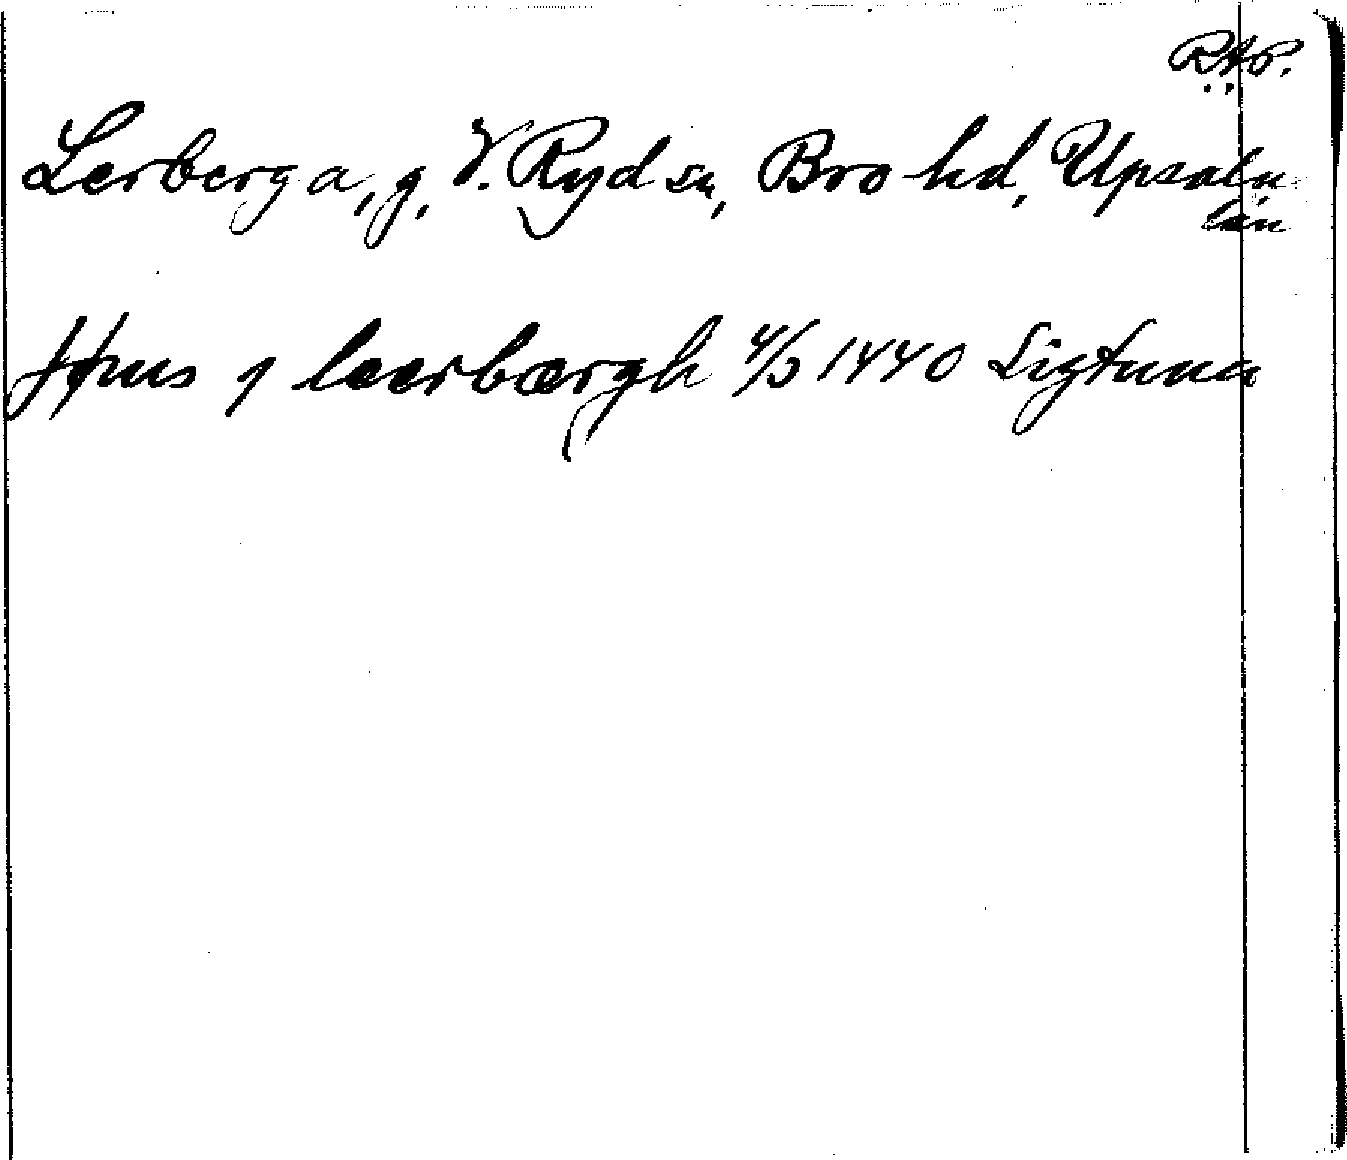 RAP.
Lerberga, g, V. Ryd sn, Bro hd, Upsala
län
Jøns j leerbærgh 4/3 1440 Sigtuna